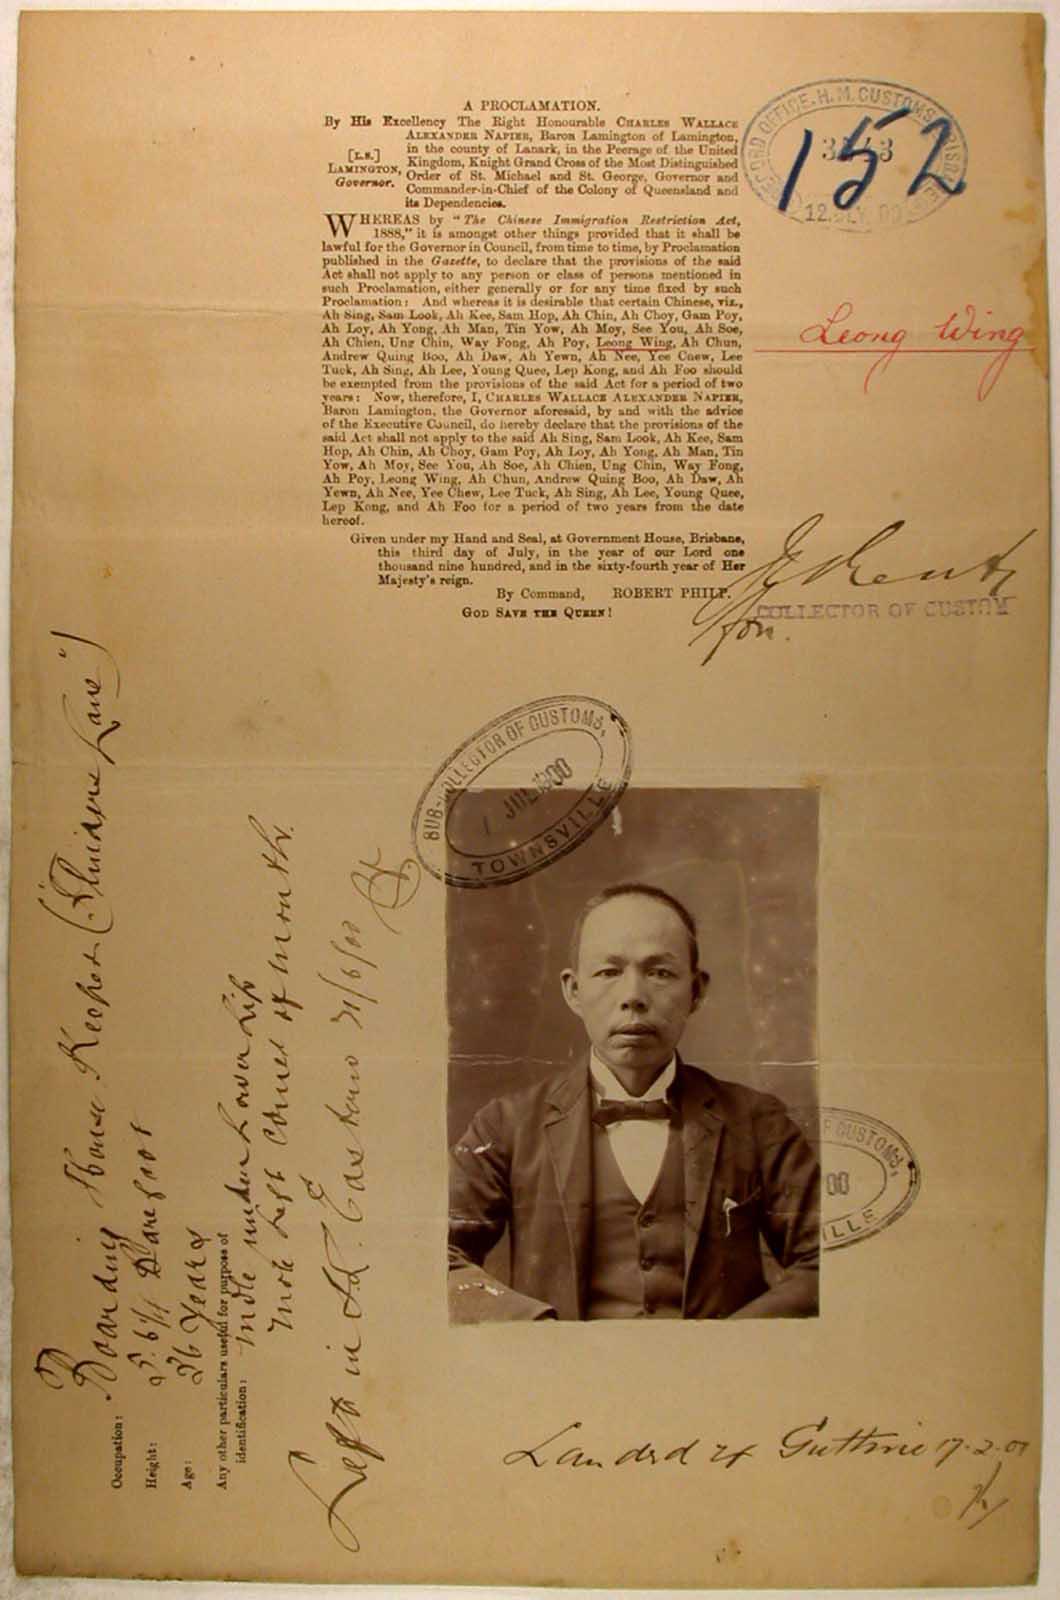 A PROCLAMATION.
By His Excellency The Right Honourable CHARLES WALLACE
ALEXANDER NAPIER, Baron Lamington of Lamington,
in the county of Lanark, in the Peerage of the United
[L.S.]
LAMINGTON,
Governor.
Kingdom, Knight Grand Cross of the Most Distinguished
Order of St. Michael and St. George, Governor and
Commander-in-Chief of the Colony of Queensland and
its Dependencies.
WHEREAS by "The Chinese Immigration Restriction Act,
1888," it is amongst other things provided that it shall be
lawful for the Governor in Council, from time to time, by Proclamation
published in the Gazette, to declare that the provisions of the said
Act shall not apply to any person or class of persons mentioned in
such Proclamation, either generally or for any time fixed by such
Proclamation: And whereas it is desirable that certain Chinese, viz.,
Ah Sing, Sam Look, Ah Kee, Sam Hop, Ah Chin, Ah Choy, Gam Poy,
Ah Loy, Ah Yong, Ah Man, Tin Yow, Ah Moy, See You, Ah Soe,
Ah Chien, Ung Chin, Way Fong, Ah Poy, Leong Wing, Ah Chun,
Andrew Quing Boo, Ah Daw, Ah Yewn, Ah Nee, Yee Chew, Lee
Tuck, Ah Sing, Ah Lee, Young Quee, Lep Kong, and Ah Foo should
be exempted from the provisions of the said Act for a period of two
years: Now, therefore, I, CHARLES WALLACE ALEXANDER NAPIER,
Baron Lamington, the Governor aforesaid, by and with the advice
of the Executive Council, do hereby declare that the provisions of the
said Act shall not apply to the said Ah Sing, Sam Look, Ah Kee, Sam
Hop, Ah Chin, Ah Choy, Gam Poy, Ah Loy, Ah Yong, Ah Man, Tin
Yow, Ah Moy, See You, Ah Soe, Ah Chien, Ung Chin, Way Fong,
Ah Poy, Leong Wing, Ah Chun, Andrew Quing Boo, Ah Daw, Ah
Yewn, Ah Nee, Yee Chew, Lee Tuck, Ah Sing, Ah Lee, Young Quee,
Lep Kong, and Ah Foo for a period of two years from the date
hereof.
Given under my Hand and Seal, at Government House, Brisbane,
this third day of July, in the year of our Lord one
thousand nine hundred, and in the sixty-fourth year of Her
Majesty's reign.
By Command, ROBERT PHILP.
GOD SAVE THE QUEEN!
RECORD OFFICE. H.M. CUSTOMS, BRISBANE
152
12 JLY. 00
Leong Wing
for.
COLLECTOR OF CUSTOM
SUB-COLLECTOR OF CUSTOMS,
JUL 1900
TOWNSVILLE
CUSTOMS,
00
ILLE
Occupation: Boarding House Keeper (Flinders Lane)
Height: 5. 6 1/4 Barefoot
Age: 36 Years
Any other particulars useful for purpose of
identification: Mole under Lower Lip
Mole Left Corner of Mouth.
Left in S.S. Eastern 21/6/00
Landed ex Guthrie 17.2.01